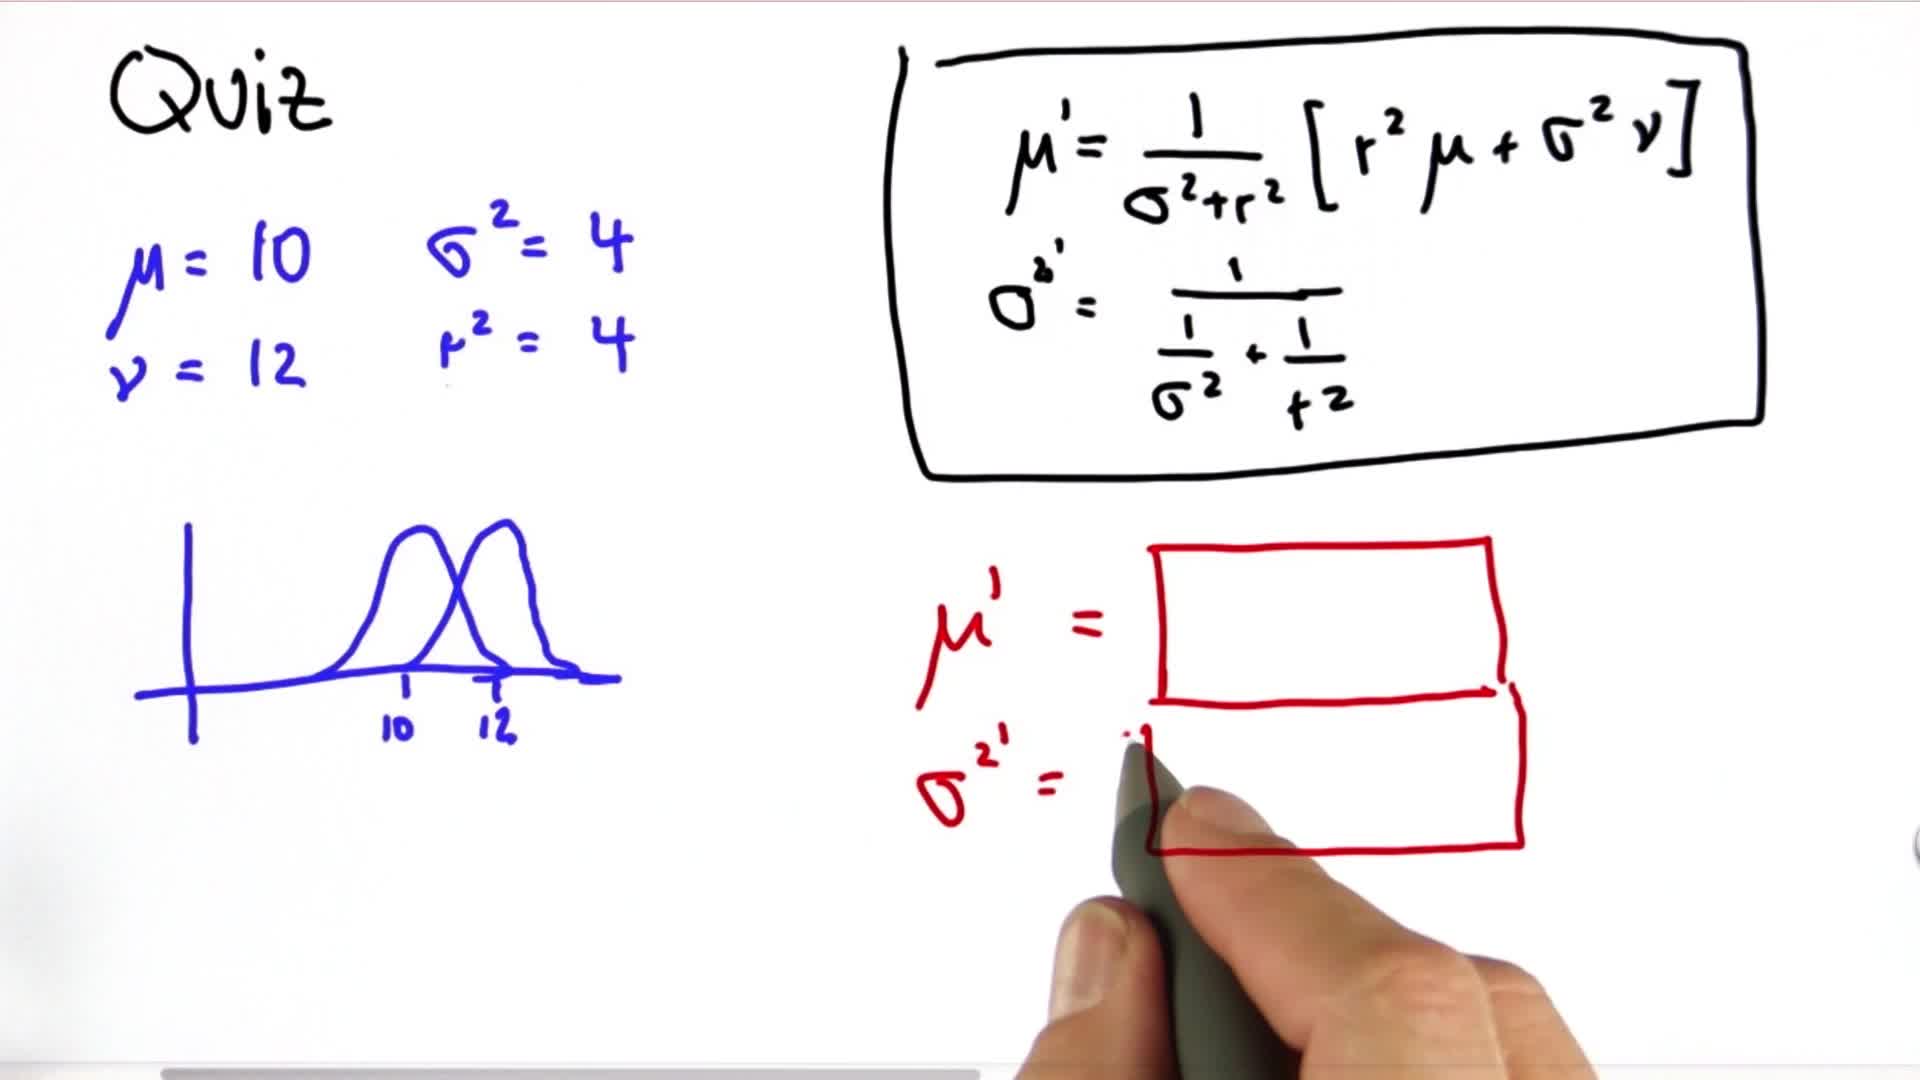 Quiz
μ = 10 σ² = 4
ν = 12 r² = 4
μ' = 1/(σ²+r²) [r²μ + σ²ν]
σ²' = 1/(1/σ² + 1/r²)
10 12
μ' =
σ²' =